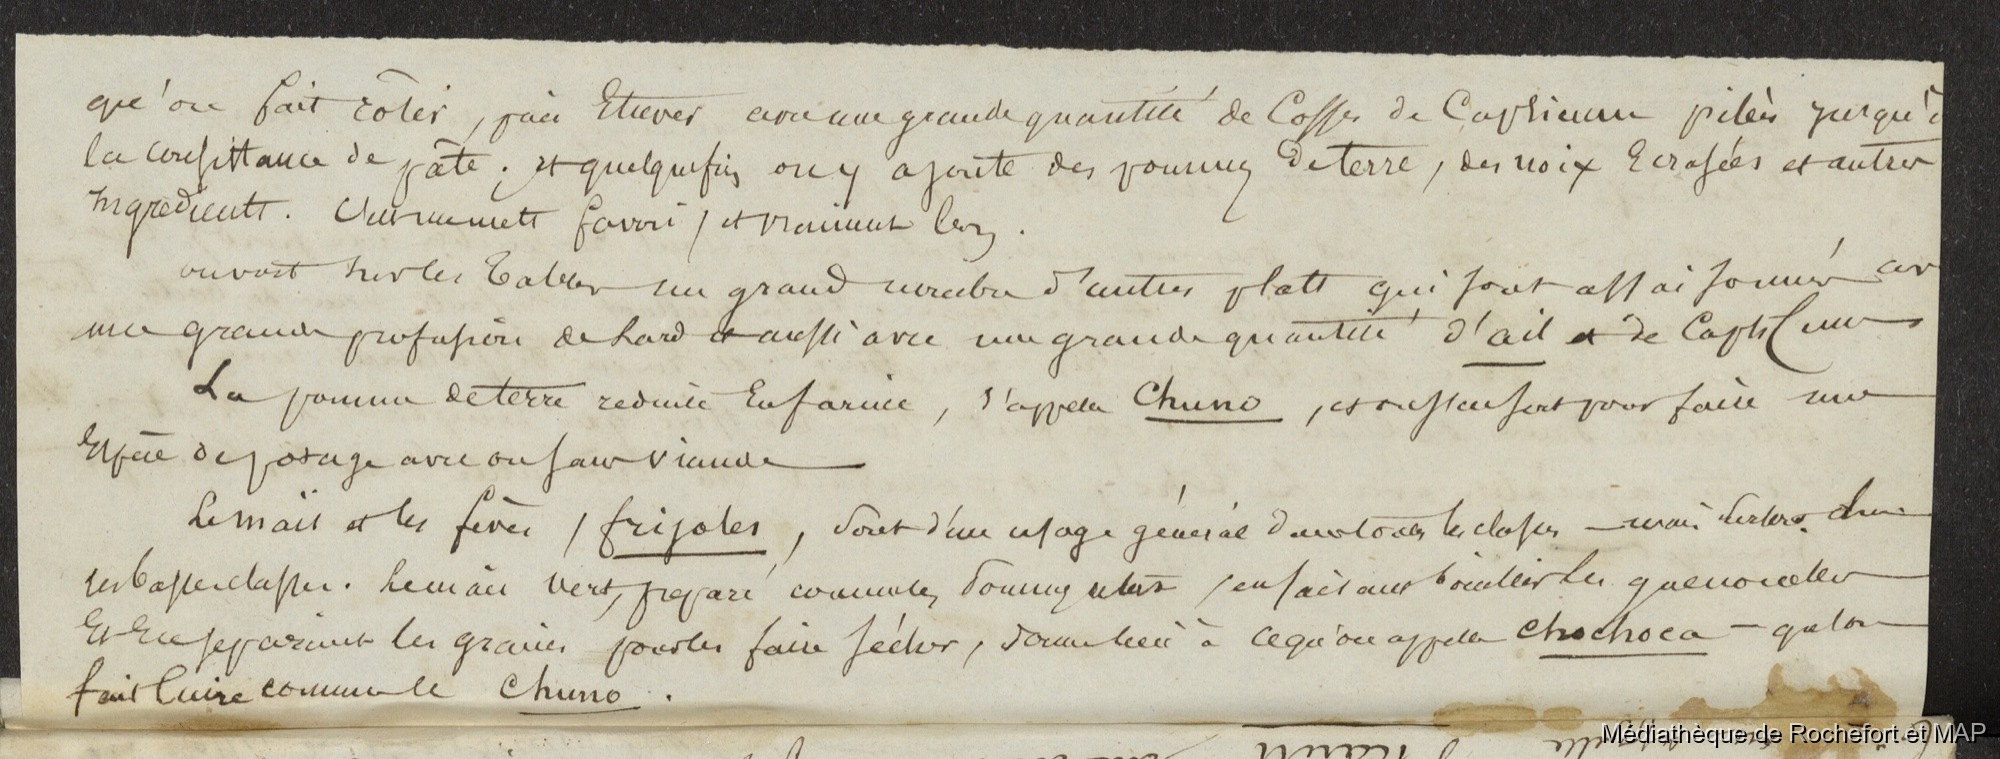 qu'on fait rôtir, puis Etuver avec une grande quantité de Cosses de Capsicum pilées jusqu'à
la consistance de pâte. et quelquefois on y ajoute des pommes de terre, des noix Ecrasées et autres
Ingredients. C'est un mets favori, et vraiment bon.
on voit sur les Tables un grand nombre d'autres plats qui sont assaisonnés avec
une grande profusion de Lard et aussi avec une grande quantité d'ail et de Capsicum
La pomme de terre reduite En farine, s'appelle Chuno, et on s'en sert pour faire une
Espèce de potage avec ou sans viande
Le maïs et les fèves, frijoles, sont d'un usage général dans toutes les classes - mais surtout chez
les basses classes. Le maïs vert, préparé comme les pommes de terre, en faisant bouillir les quenouilles
Et En séparant les grains pour les faire sécher, donne lieu à ce qu'on appelle Chochoca - que l'on
fait Cuire comme le Chuno.
Médiathèque de Rochefort et MAP